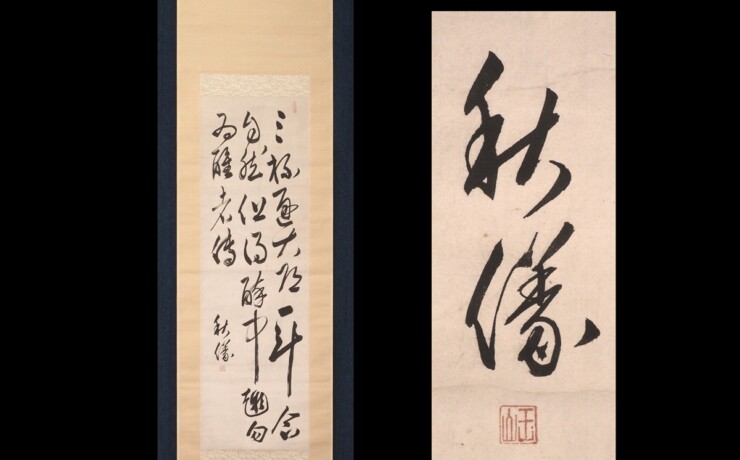 三杯通大道一斗合
自然但得醉中趣勿
為醒者傳
秋儀
秋儀
玉山